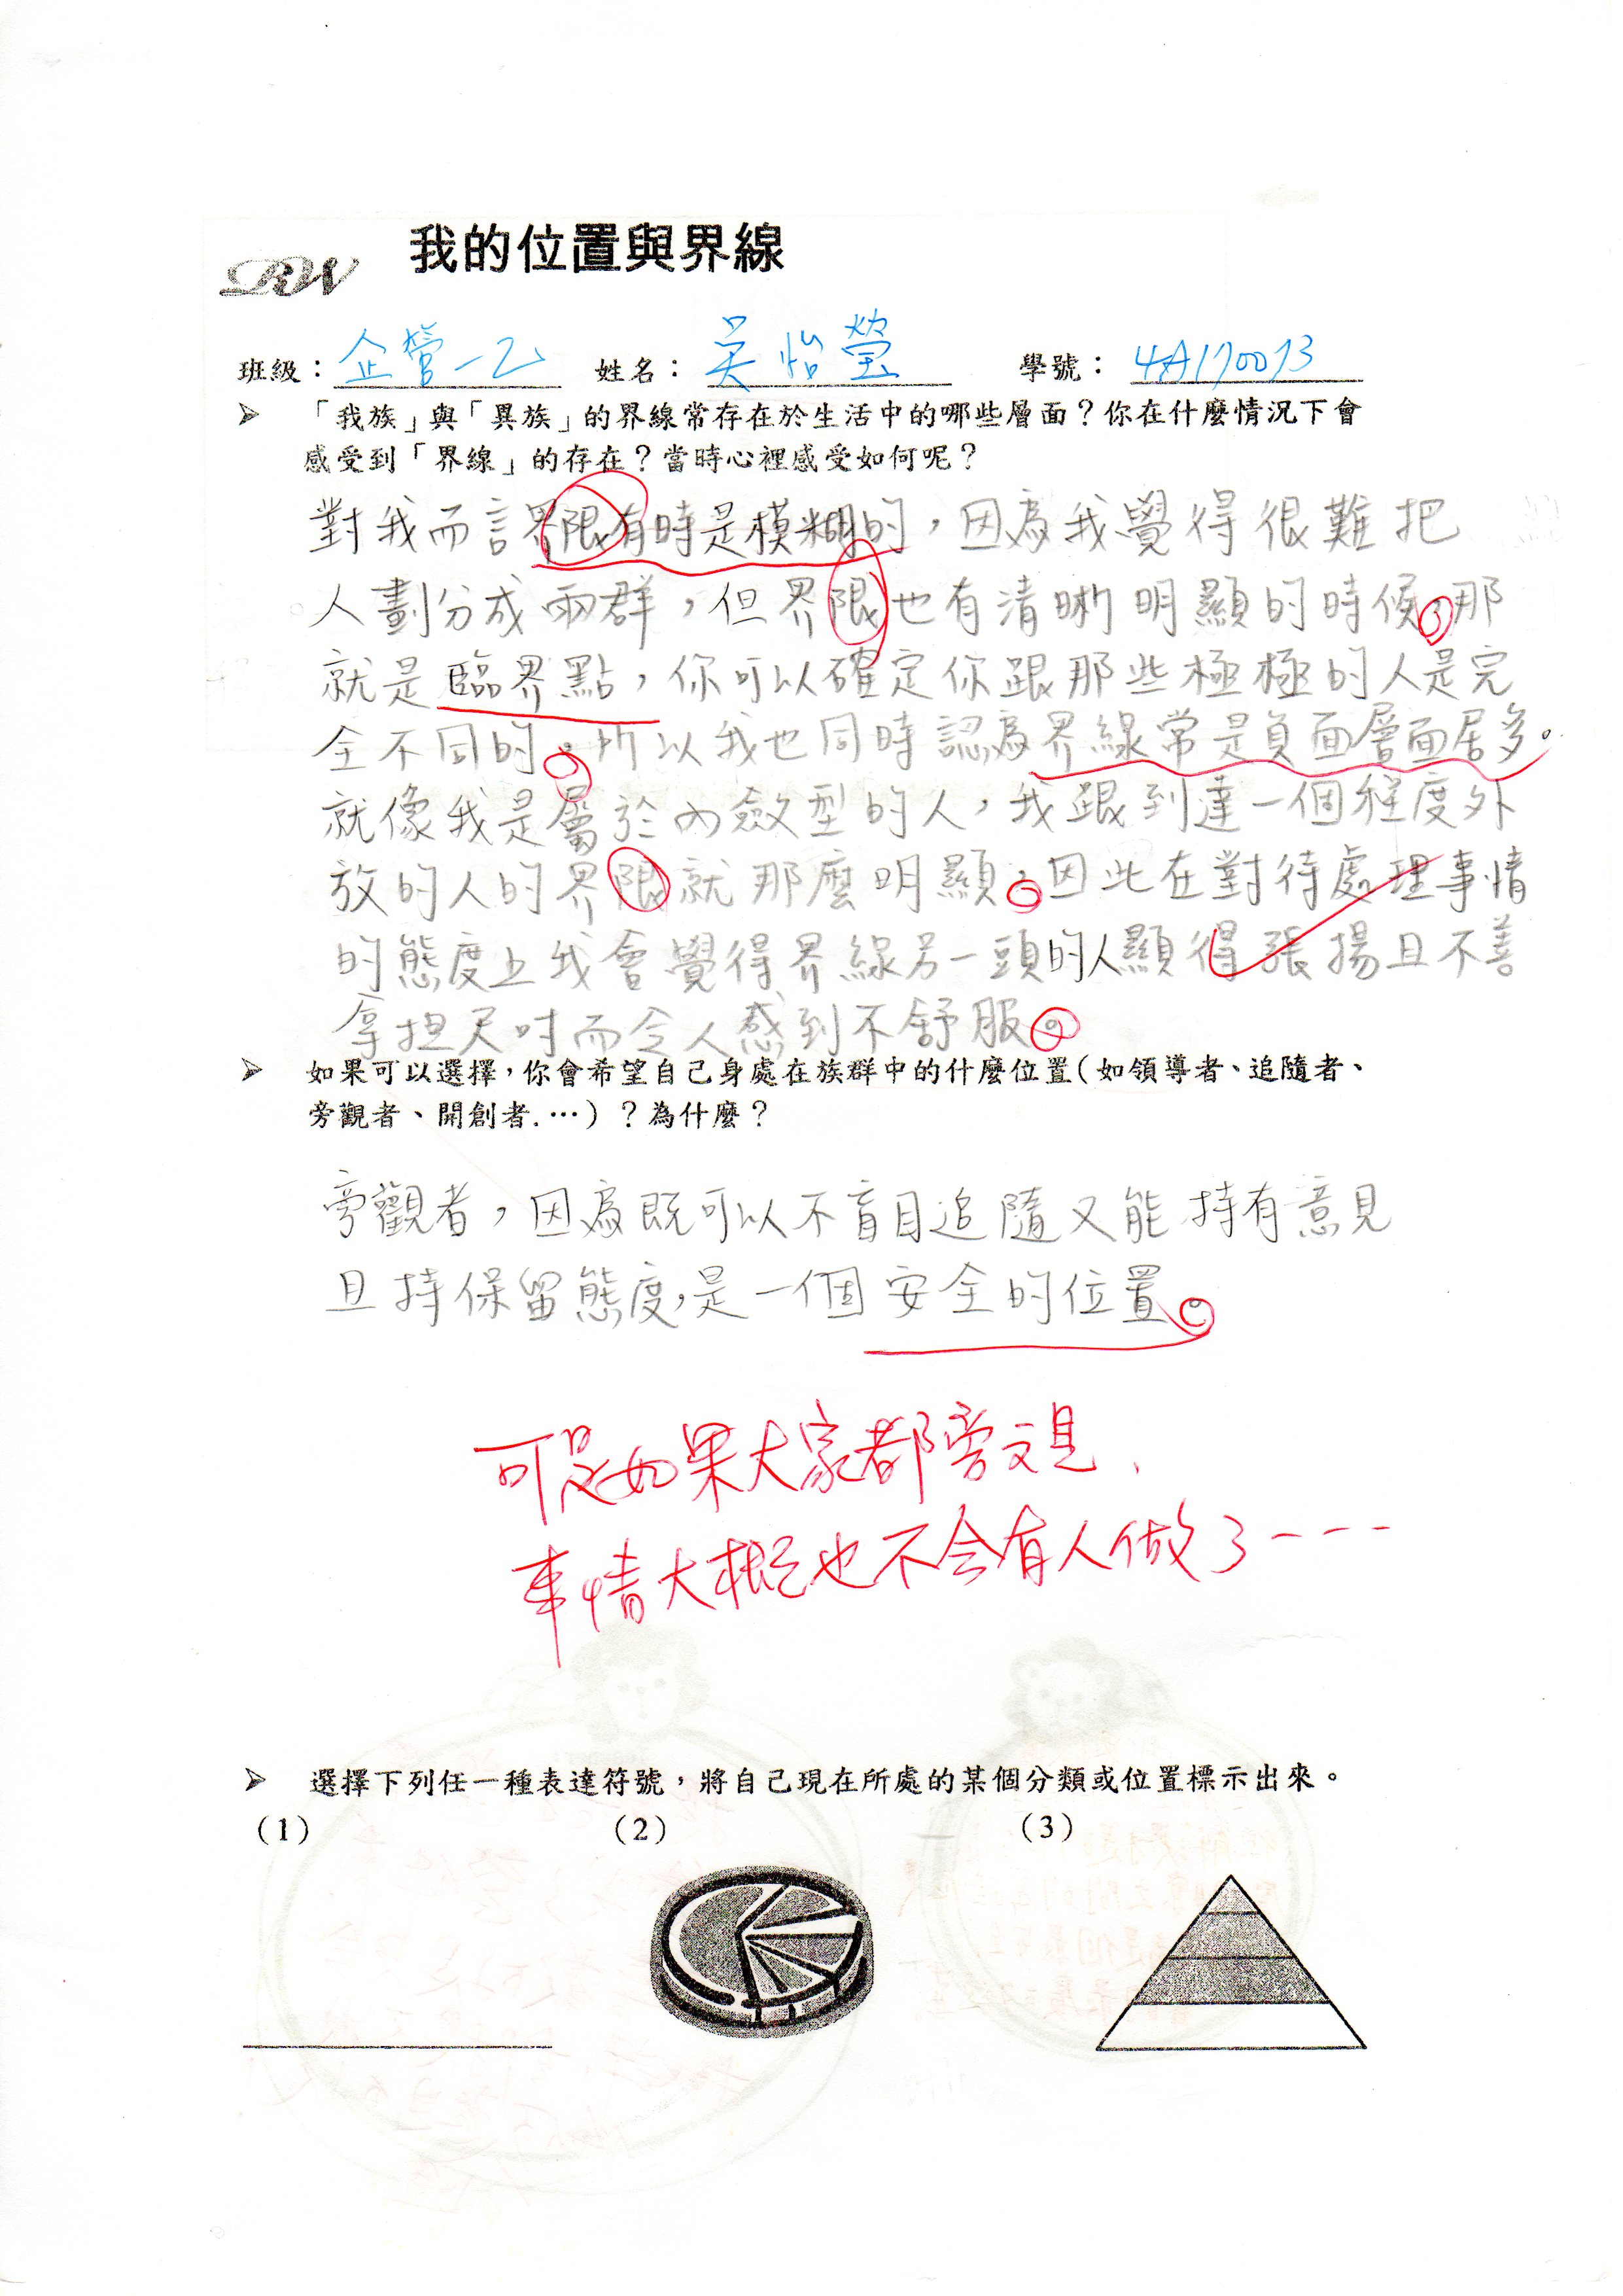 我的位置與界線
RW
班級：企營一乙 姓名：吳怡瑩 學號：4A170073
➢ 「我族」與「異族」的界線常存在於生活中的哪些層面？你在什麼情況下會
感受到「界線」的存在？當時心裡感受如何呢？
對我而言界限有時是模糊的，因為我覺得很難把
人劃分成兩群，但界限也有清晰明顯的時候，那
就是臨界點，你可以確定你跟那些極極的人是完
全不同的。所以我也同時認為界線常是負面層面居多。
就像我是屬於內斂型的人，我跟到達一個程度外
放的人的界限就那麼明顯，因此在對待處理事情
的態度上我會覺得界線另一頭的人顯得張揚且不善
拿捏尺吋而令人感到不舒服。
➢ 如果可以選擇，你會希望自己身處在族群中的什麼位置(如領導者、追隨者、
旁觀者、開創者.…)？為什麼？
旁觀者，因為既可以不盲目追隨又能持有意見
且持保留態度，是一個安全的位置。
可是如果大家都旁觀、
事情大概也不会有人做了----
➢ 選擇下列任一種表達符號，將自己現在所處的某個分類或位置標示出來。
(1) (2) (3)